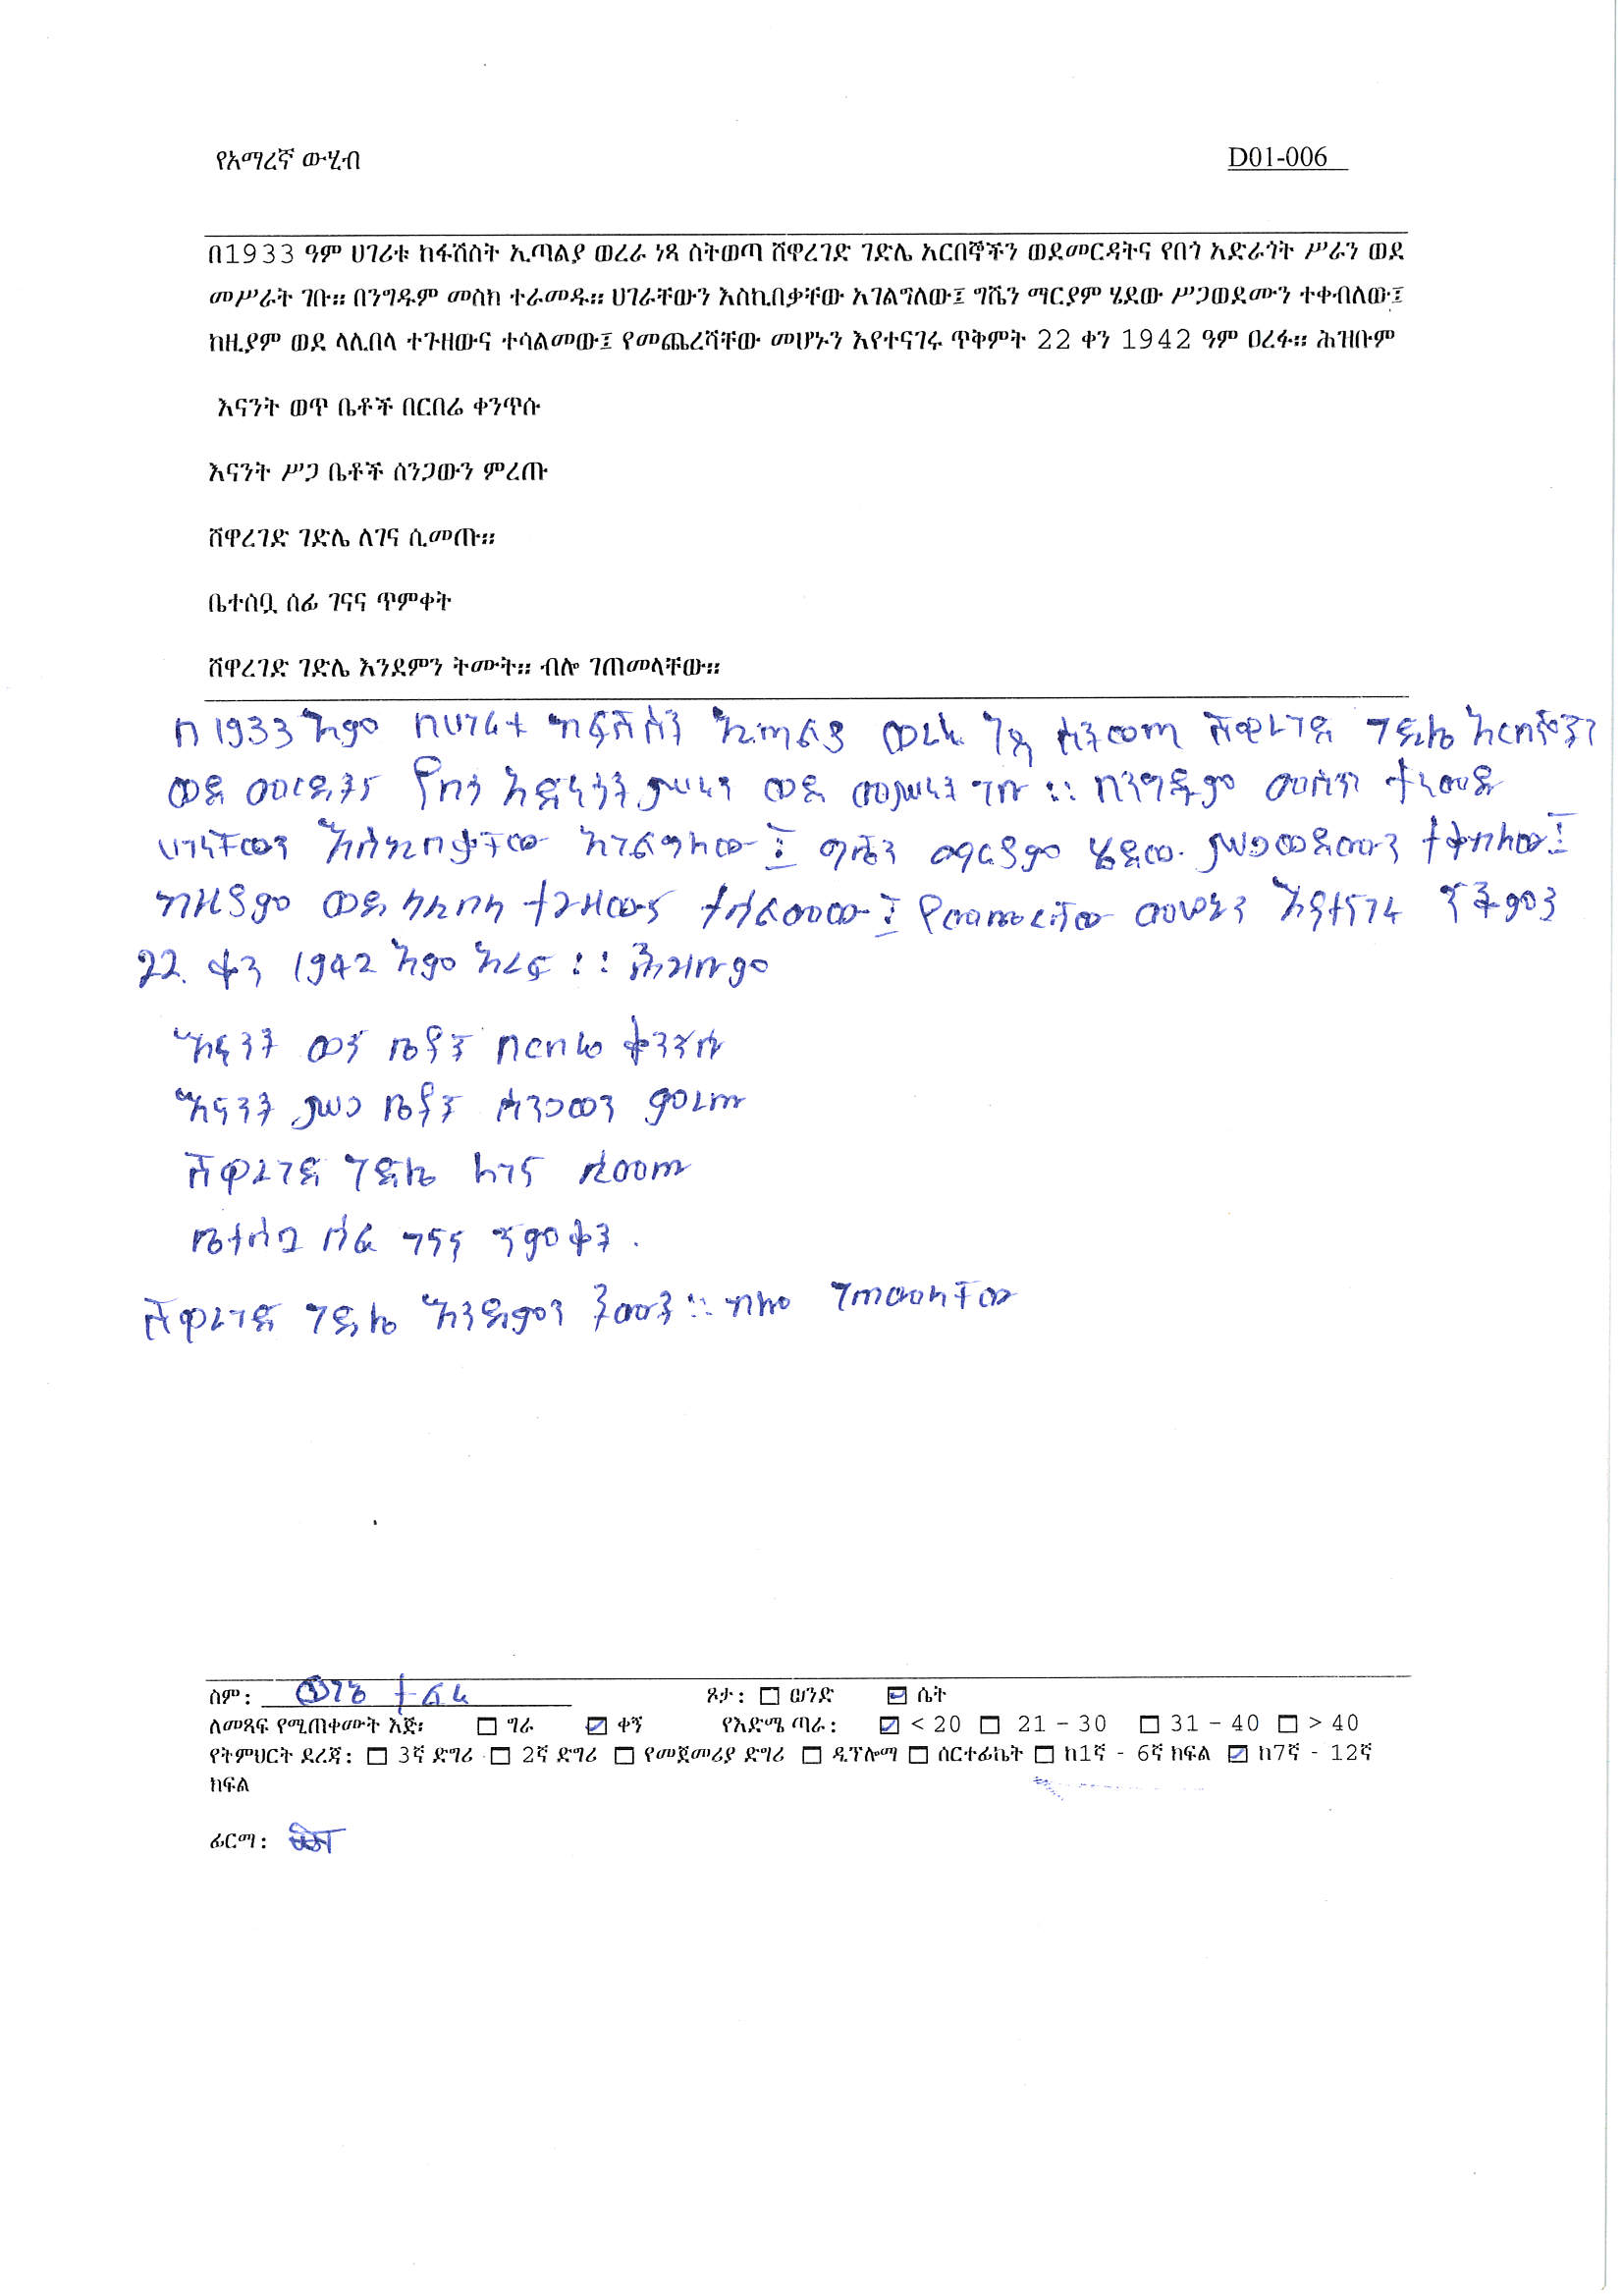 የአማረኛ ውሂብ D01-006
በ1933 ዓም ሀገሪቱ ከፋሽስት ኢጣልያ ወረራ ነጻ ስትወጣ ሸዋረገድ ገድሌ አርበኞችን ወደመርዳትና የበጎ አድራጎት ሥራን ወደ
መሥራት ገቡ። በንግዱም መስክ ተራመዱ። ሀገራቸውን እስኪበቃቸው አገልግለው፤ ግሼን ማርያም ሄደው ሥጋወደሙን ተቀብለው፤
ከዚያም ወደ ላሊበላ ተጉዘውና ተሳልመው፤ የመጨረሻቸው መሆኑን እየተናገሩ ጥቅምት 22 ቀን 1942 ዓም ዐረፉ። ሕዝቡም
እናንት ወጥ ቤቶች በርበሬ ቀንጥሱ
እናንት ሥጋ ቤቶች ሰንጋውን ምረጡ
ሸዋረገድ ገድሌ ለገና ሲመጡ።
ቤተሰቧ ሰፊ ገናና ጥምቀት
ሸዋረገድ ገድሌ እንደምን ትሙት። ብሎ ገጠመላቸው።
በ 1933 አም በሀገሪተ ከፋሽስት ኢጣልያ ወረራ ነጻ ስትወጣ ሸዋረገድ ገድሌ አርበኞችን
ወደ መርዳትና የበጎ አድራጎት ሥራን ወደ መሥራት ገቡ ። በንግዱም መስክ ተራመዱ
ሀገራቸውን እስኪበቃቸው አገልግለው ፤ ግሼን ማርያም ሄደው ሥጋወደሙን ተቀብለው ፤
ከዚያም ወደ ላሊበላ ተጉዘውና ተሳልመው ፤ የመጨረሻቸው መሆኑን እያተናገሩ ጥቅምት
22 ቀን 1942 አም አረፉ ። ሕዝቡም
እናንት ወጥ ቤቶች በርበሬ ቀንጥሱ
እናንት ሥጋ ቤቶች ሰንጋወን ምረጡ
ሸዋረገድ ገድሌ ለገና ሲመጡ
ቤተሰቧ ሰፊ ገናና ጥምቀት
ሸዋረገድ ገድሌ እንደምን ትሙት ። ብሎ ገጠመላቸው
ስም: ፆታ: ወንድ ሴት
ለመጻፍ የሚጠቀሙት እጅ፡ ግራ ቀኝ የእድሜ ጣራ: < 20 21 - 30 31 - 40 > 40
የትምህርት ደረጃ: 3ኛ ድግሪ 2ኛ ድግሪ የመጀመሪያ ድግሪ ዲፕሎማ ሰርተፊኬት ከ1ኛ - 6ኛ ክፍል ከ7ኛ - 12ኛ
ክፍል
ፊርማ: